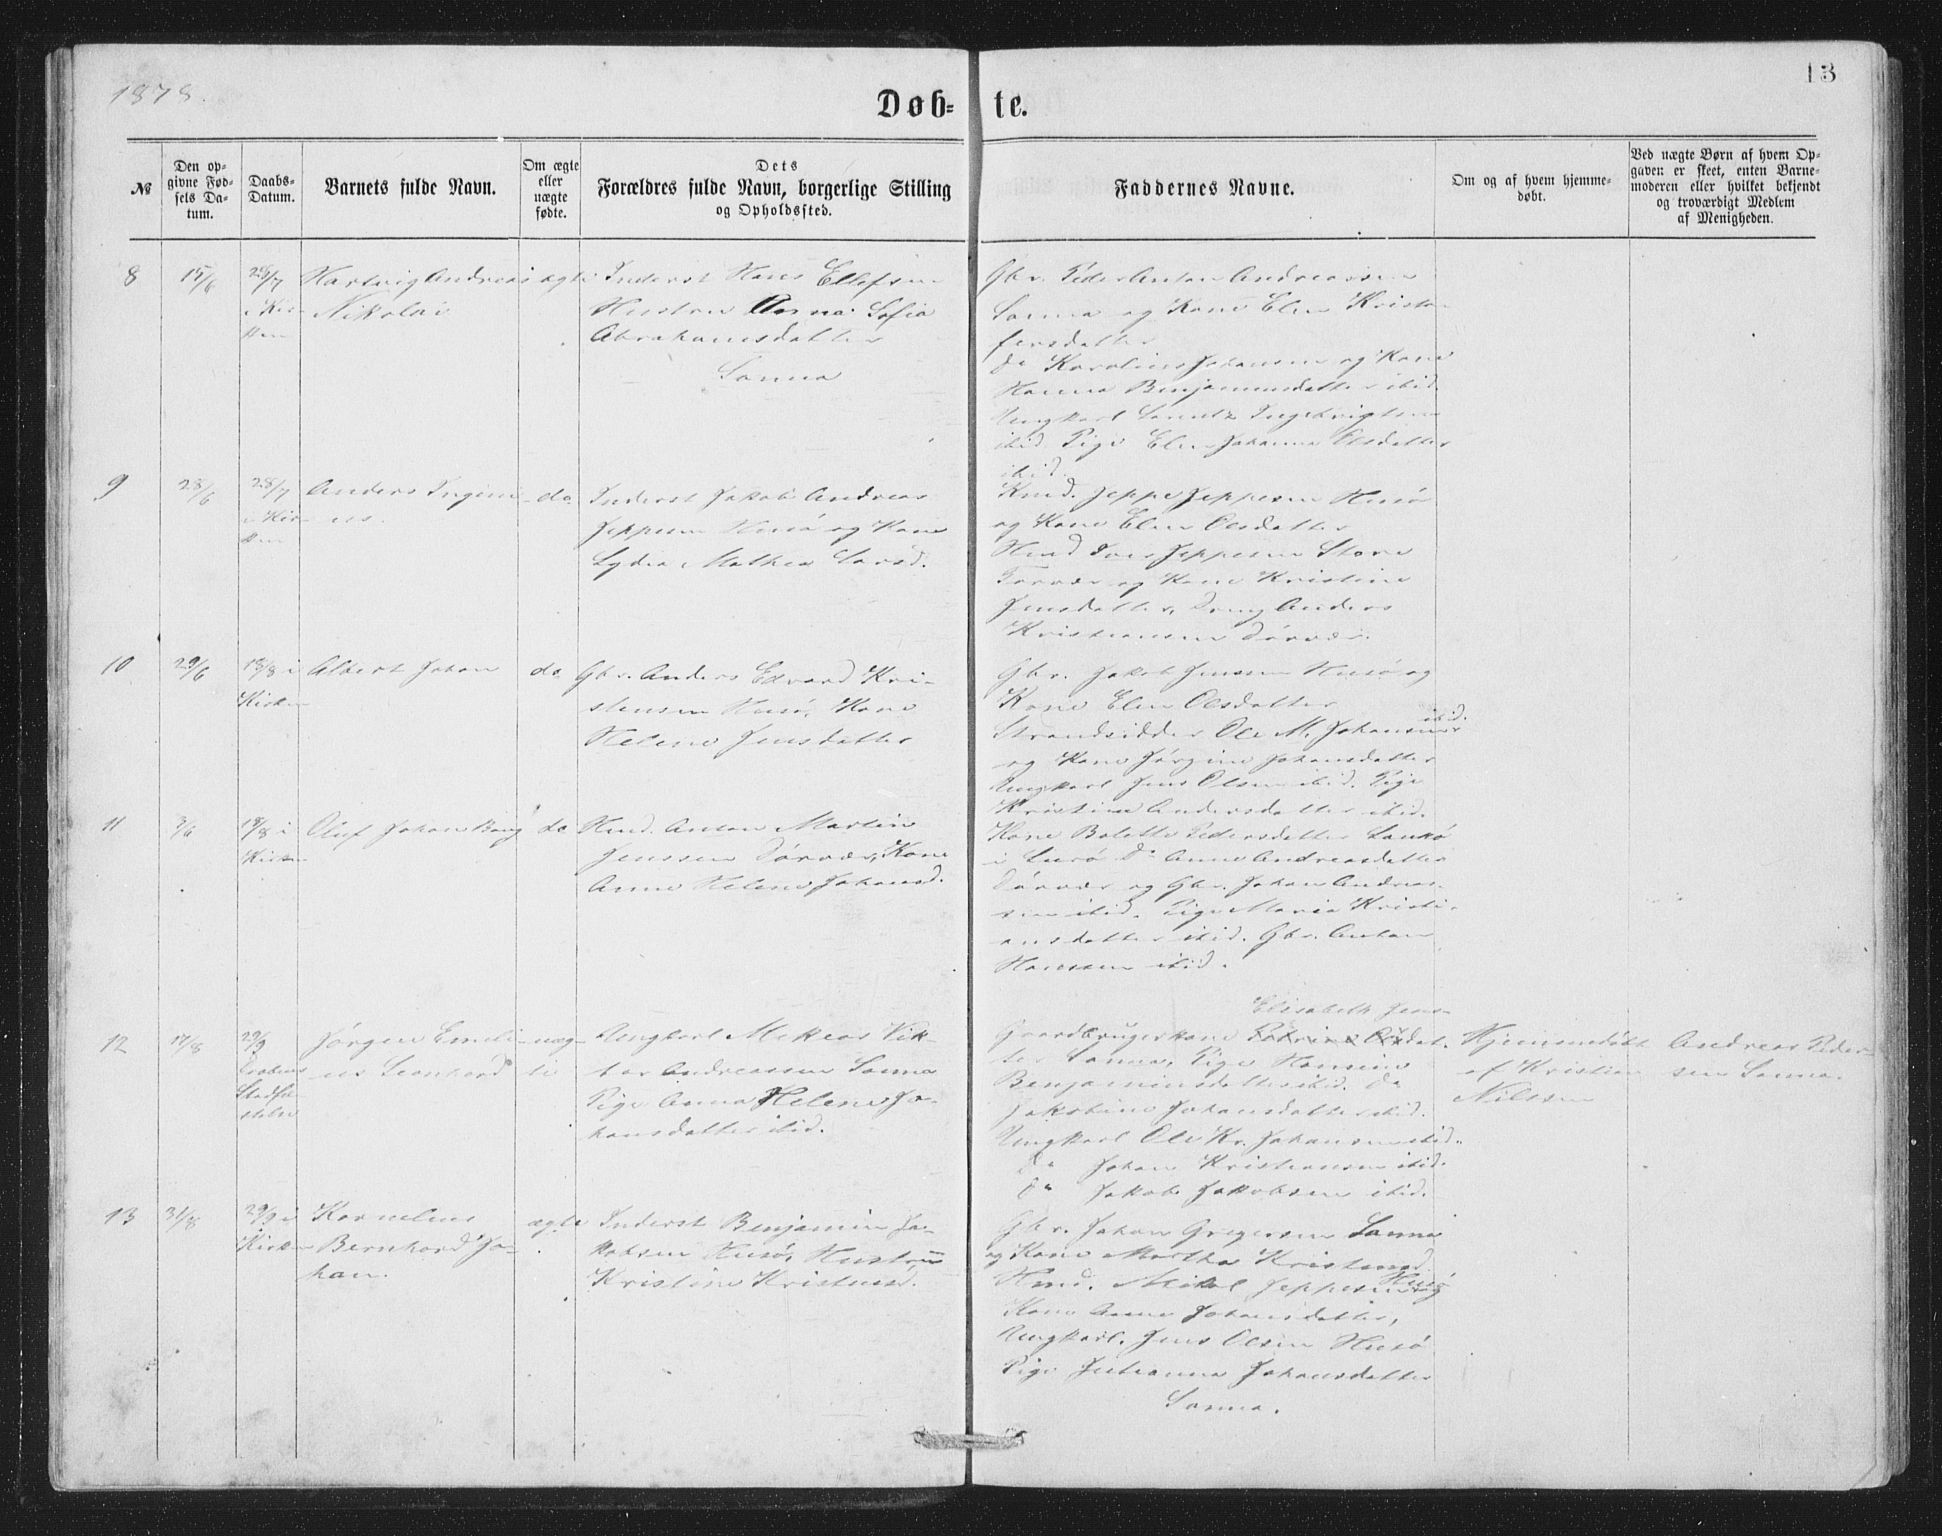 1878.
13
Døb- te.
№
Den op-
givne Fød-
sels Da-
tum.
Daabs-
Datum.
Barnets fulde Navn.
Om ægte
eller
uægte
fødte.
Dets
Forældres fulde Navn, borgerlige Stilling
og Opholdssted.
Faddernes Navne.
Om og af hvem hjemme-
døbt.
Ved uægte Børn af hvem Op-
gaven er skeet, enten Barne-
moderen eller hvilket bekjendt
og troværdigt Medlem
af Menigheden.
8
15/6
28/7
i Kir-
ken
Hartvig Andreas
Nikolai
ægte
Inderst Hans Ellefsen
Hustru Anna Sofia
Abrahamsdatter
Sanna
Gbr. Peder Anton Andreassen
Sanna og Kone Elen Kristo-
fersdatter
do Karolius Johansen og Kone
Hanna Benjaminsdatter ibid.
Ungkarl Lorentz Ingebrigtsen
ibid. Pige Elen Johanna Olsdatter
ibid.
9
28/6
28/7
i Kir-
ken
Anders Ingem-
us.
do
Inderst Jakob Andreas
Jeppesen Husø og Kone
Lydia Mathea Larsd.
Kmd. Jeppe Jeppesen Husø
og Kone Elen Olsdatter
Kmd Jeppesen Store
og Kone Kristine
Jensdatter, Dreng Anders
Kristiansen Dørvær.
10
29/6
18/8 i
Kirken
Albert Johan
do
Gbr. Anders Edvard Kri-
stensen Husø, Kone
Helene Jensdatter
Gbr. Jakob Jenssen Husø og
Kone Elen Olsdatter
Strandsidder Ole M. Johansen ibid.
og Kone Jørgine Johansdatter
Ungkarl Jens Olsen ibid. Pige
Kristina Andersdatter ibid.
11
3/6
18/8 i
Kirken
Oluf Johan Bang
do
Kmd. Anton Martin
Jenssen Dørvær, Kone
Anne Helene Johansd.
Kone Bolette Pedersdatter
i Lurø Do Anne Andreasdatter
Dørvær og Gbr. Johan Andreas-
sen ibid. Pige Maria Kristi-
ansdatter ibid. Gbr. Anton
Hanssen ibid.
12
17/8
29/9
Daabens
Stadfæ-
stelse
Jørgen Emili-
us Leonhard
uæg-
te
Ungkarl Mekeas Vik-
tor Andreassen Sanna
Pige Anna Helene Jo-
hansdatter ibid.
Elisabeth Jens-
Gaardbrugerkone Petrine Olsdat-
ter Sanna, Pige Hansine
Benjaminsdatter ibid. Do
Jakobine Johansdatter ibid.
Ungkarl Ole Kr. Johansen ibid.
Do Johan Kristiansen ibid.
Do Jakob Jakobsen ibid.
Hjemmedøbt
af Kristian
Nilssen
Andreas Peder-
sen Sanna.
13
31/8
29/9 i
Kirken
Kornelius
Bernhard Jo-
han.
ægte
Inderst Benjamin Ja-
kobsen Husø, Hustru
Kristine Kristensd.
Gbr. Johan Gregersen Sanna
og Kone Martha Kristensd.
Kmd. Mikal Jeppesen Husø og
Kone Anna Johansdatter,
Ungkarl. Jens Olsen Husø
Pige Julianna Johansdatter
Sanna.